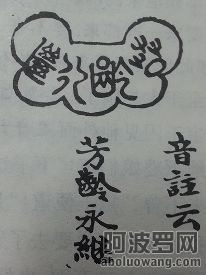 芳齡永繼
音註云
芳齡永繼
阿波罗网
aboluowang.com